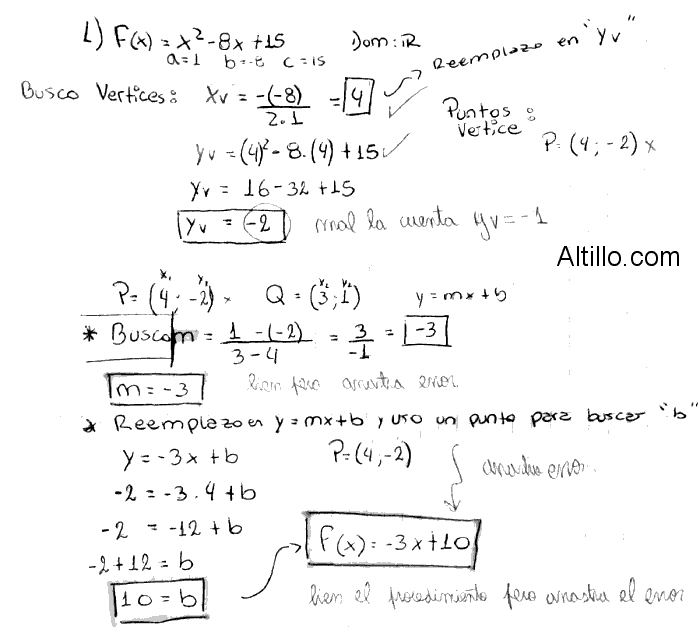 1) F(x) = x² - 8x + 15 Dom: ℝ
a=1 b=-8 c=15
Reemplazo en "Yv"
Busco Vertices: Xv = -(-8) / 2.1 = 4
Puntos Vertice: P=(4;-2) x
Yv = (4)² - 8.(4) + 15 ✓
Yv = 16 - 32 + 15
Yv = -2 mal la cuenta yv = -1
Altillo.com
x₁ y₁ x₂ y₂
P= (4; -2) x Q = (3; 1) y = mx + b
* Busco m = 1 - (-2) / 3 - 4 = 3 / -1 = -3
m = -3 bien pero arrastra error
* Reemplazo en y = mx + b y uso un punto para buscar "b"
y = -3x + b P=(4,-2)
arrastra error.
-2 = -3.4 + b
-2 = -12 + b
F(x) = -3x + 10
-2 + 12 = b
10 = b
bien el procedimiento pero arrastra el error